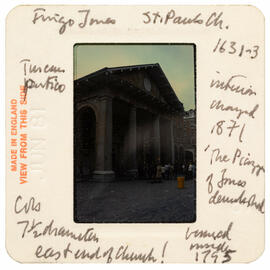 Inigo Jones St. Pauls Ch.
1631-3
Tuscan
portico
interior
changed
1871
MADE IN ENGLAND
VIEW FROM THIS SIDE
JUN 81
'The Piazza
of Jones
demolished
Cols
7½ diameters
east end of Church!
burned
inside
1795